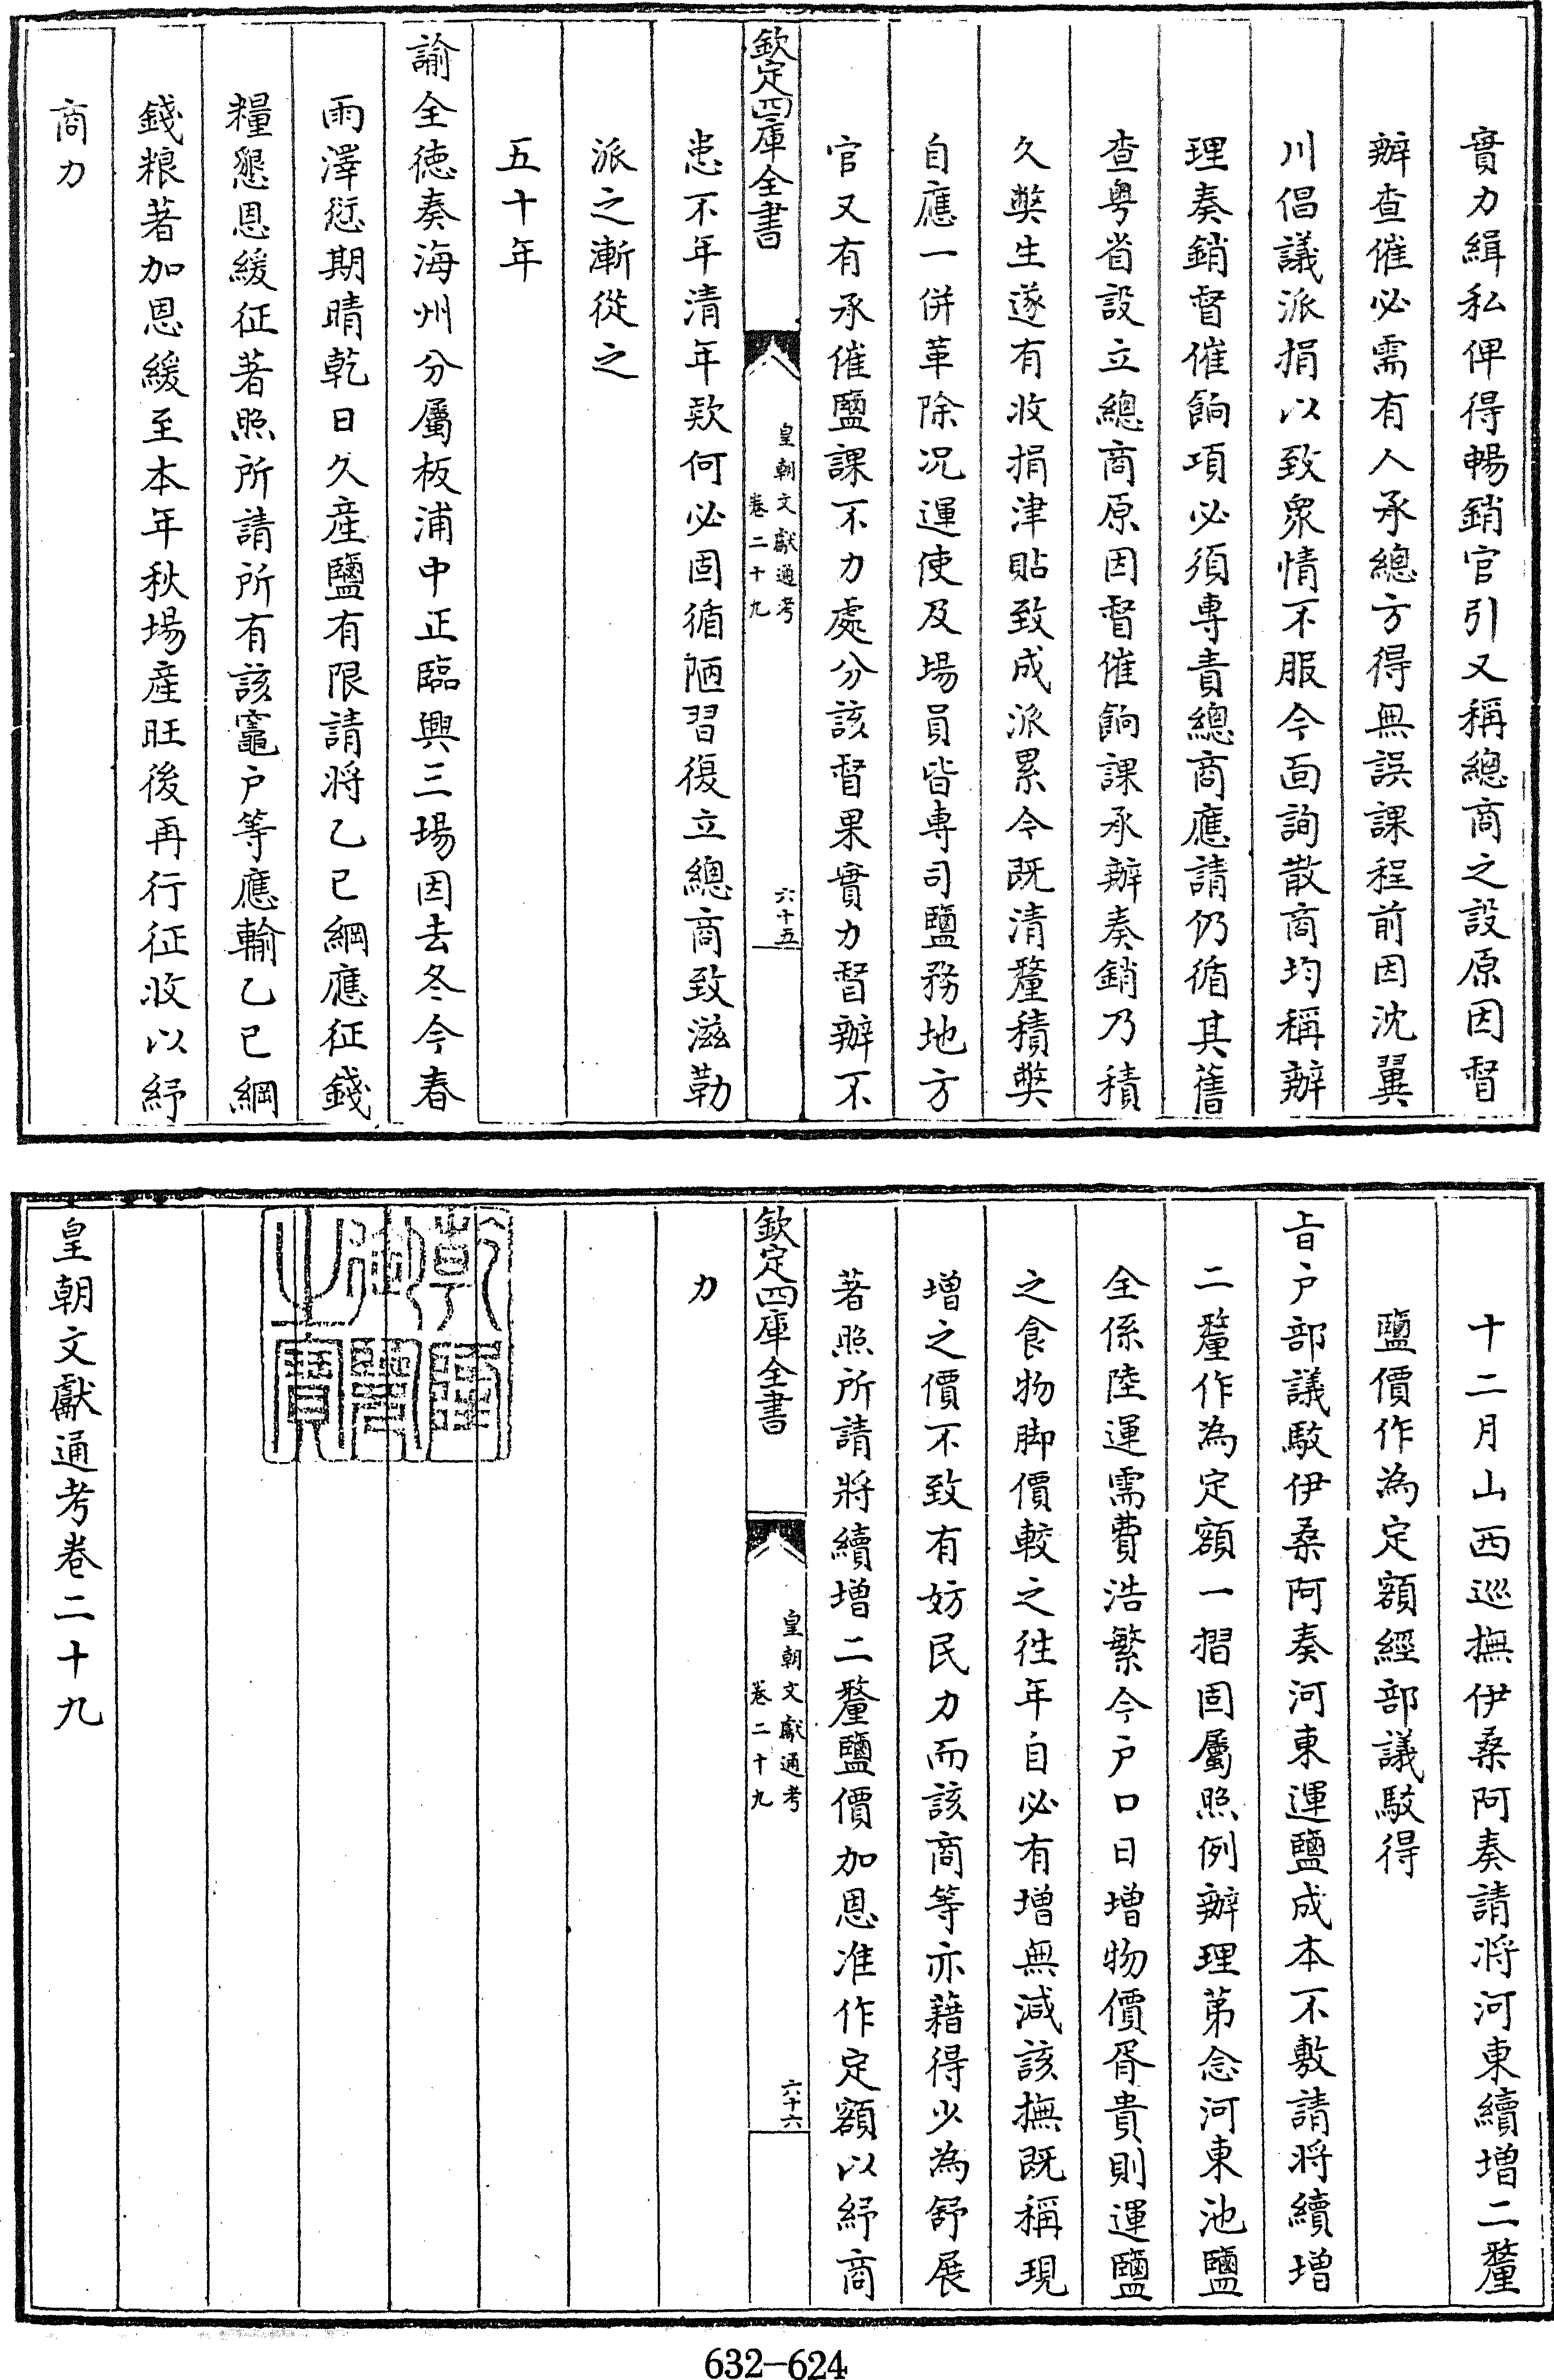 實力緝私俾得暢銷官引又稱總商之設原因督
辦查催必需有人承總方得無誤課程前因沈翼
川倡議派捐以致衆情不服今面詢散商均稱辦
理奏銷督催餉項必須專責總商應請仍循其舊
查粤省設立總商原因督催餉課承辦奏銷乃積
久弊生遂有收捐津貼致成派累今既清釐積弊
自應一併革除况運使及場員皆專司鹽務地方
官又有承催鹽課不力處分該督果實力督辦不
欽定四庫全書
皇朝文獻通考
卷二十九
六十五
患不年清年欵何必因循陋習復立總商致滋勒
派之漸從之
五十年
諭全德奏海州分屬板浦中正臨興三場因去冬今春
雨澤愆期晴乾日久產鹽有限請將乙巳綱應征錢
糧懇恩緩征著照所請所有該竈户等應輸乙巳綱
錢粮著加恩緩至本年秋場產旺後再行征收以紓
商力
十二月山西巡撫伊桑阿奏請將河東續增二釐
鹽價作為定額經部議駁得
旨户部議駁伊桑阿奏河東運鹽成本不敷請將續增
二釐作為定額一摺固屬照例辦理第念河東池鹽
全係陸運需費浩繁今户口日增物價胥貴則運鹽
之食物脚價較之徃年自必有增無減該撫既稱現
增之價不致有妨民力而該商等亦藉得少為舒展
著照所請將續增二釐鹽價加恩准作定額以紓商
欽定四庫全書
皇朝文獻通考
卷二十九
六十六
力
乾隆御覽之寶
皇朝文獻通考卷二十九
632-624